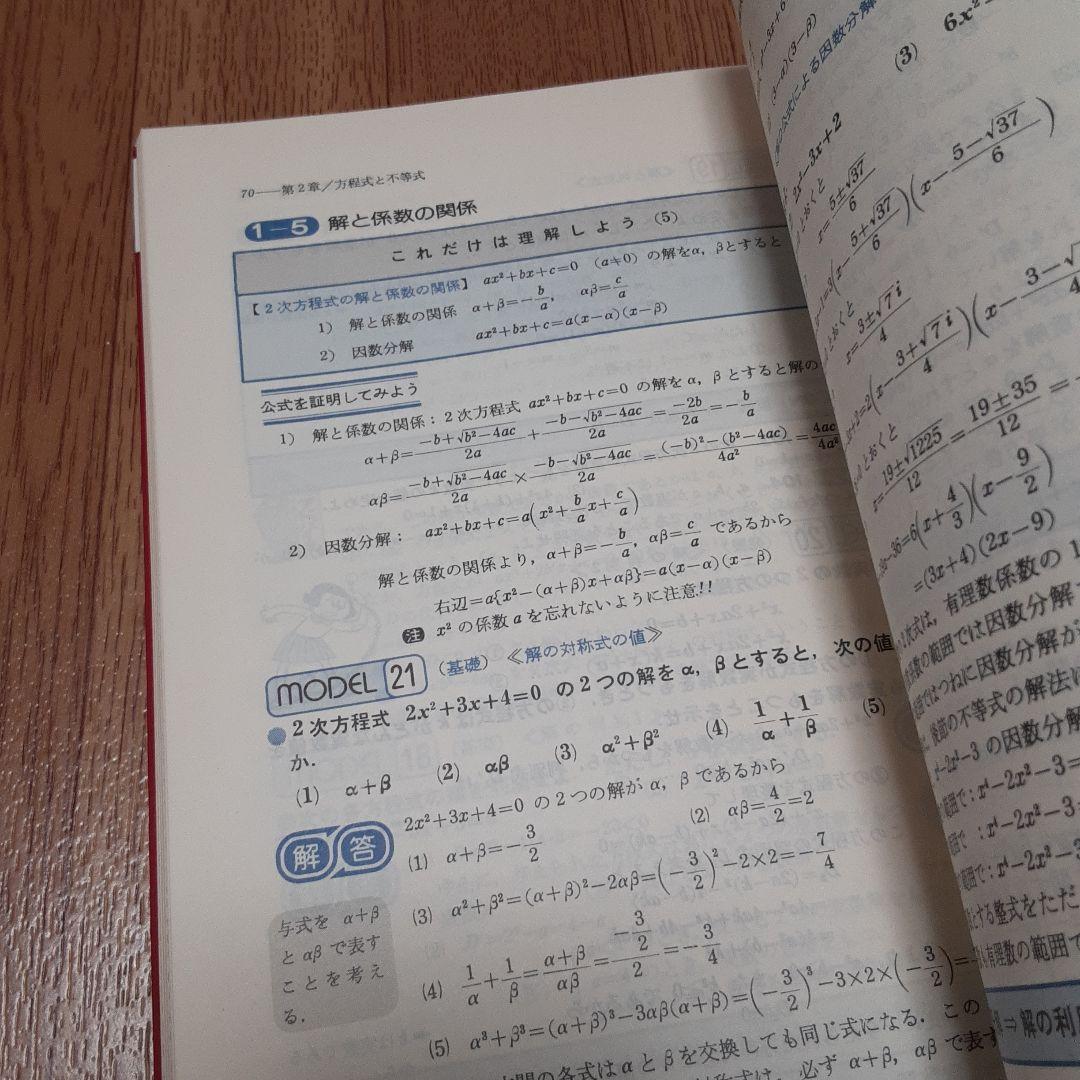 70——第2章／方程式と不等式
1－5 解と係数の関係
これだけは理解しよう (5)
【2次方程式の解と係数の関係】 ax²+bx+c=0 (a≠0) の解をα, βとすると
1) 解と係数の関係 α+β=-b/a, αβ=c/a
2) 因数分解 ax²+bx+c=a(x-α)(x-β)
公式を証明してみよう
1) 解と係数の関係：2次方程式 ax²+bx+c=0 の解をα, βとすると解の
α+β=(-b+√(b²-4ac))/2a+(-b-√(b²-4ac))/2a=-2b/2a=-b/a
αβ=(-b+√(b²-4ac))/2a×(-b-√(b²-4ac))/2a=((-b)²-(b²-4ac))/4a²=4ac/4a²
2) 因数分解： ax²+bx+c=a(x²+b/a x+c/a)
解と係数の関係より, α+β=-b/a, αβ=c/a であるから
右辺=a{x²-(α+β)x+αβ}=a(x-α)(x-β)
注 x² の係数 a を忘れないように注意!!
MODEL 21 (基礎) 《解の対称式の値》
2次方程式 2x²+3x+4=0 の2つの解をα, βとすると, 次の値
か.
(1) α+β (2) αβ (3) α²+β² (4) 1/α+1/β (5)
解答 2x²+3x+4=0 の2つの解が α, β であるから
(1) α+β=-3/2 (2) αβ=4/2=2
(3) α²+β²=(α+β)²-2αβ=(-3/2)²-2×2=-7/4
(4) 1/α+1/β=(α+β)/αβ=(-3/2)/2=-3/4
(5) α³+β³=(α+β)³-3αβ(α+β)=(-3/2)³-3×2×(-3/2)=
与式を α+β
と αβ で表す
ことを考え
る.
の各式は α と β を交換しても同じ式になる. この
必ず α+β, αβ で表す
(3) 6x²
(3-β)
による因数分解
2x²-3x+2
とおくと
x=(5±√37)/6
(x-(5+√37)/6)(x-(5-√37)/6)
おくと
x=(3±√7i)/4
=2(x-(3+√7i)/4)(x-(3-√
とおくと
x=(19±√1225)/12=(19±35)/12=
-36=6(x+4/3)(x-9/2)
=(3x+4)(2x-9)
次式は, 有理数係数の
の範囲では因数分解
ではつねに因数分解が
後節の不等式の解法
-2x²-3 の因数分解
範囲で：x⁴-2x²-3=
範囲で：x⁴-2x²-3
範囲で：x⁴-2x²-3
とする整式をただ
有理数の範囲で
⇒解の利